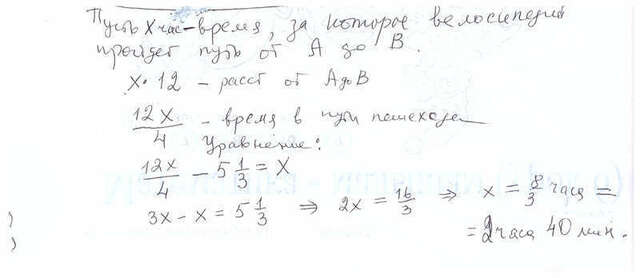 Пусть x час - время, за которое велосипедист
пройдет путь от А до В.
x · 12 - расст от А до В
12x/4 - время в пути пешехода
Уравнение:
12x/4 - 5 1/3 = x
3x - x = 5 1/3 ⇒ 2x = 16/3 ⇒ x = 8/3 часа =
= 2 часа 40 мин.